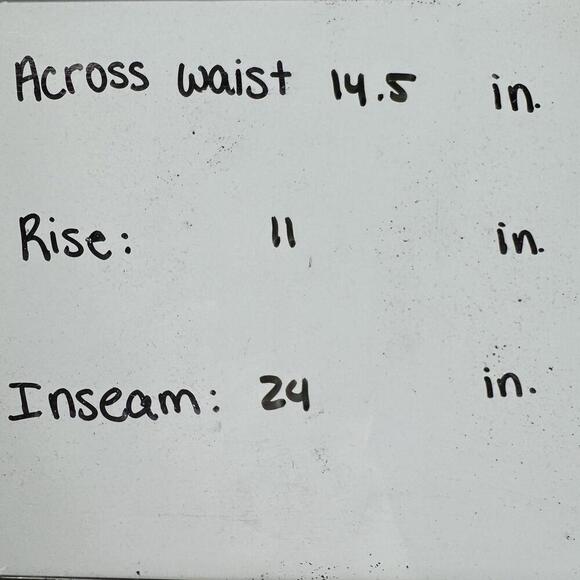 Across waist 14.5 in.
Rise: 11 in.
Inseam: 24 in.